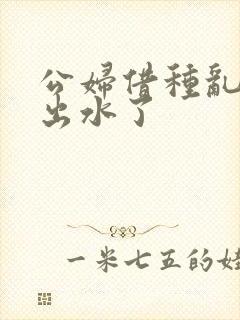 公婦借種亂
出水了
一米七五的娃